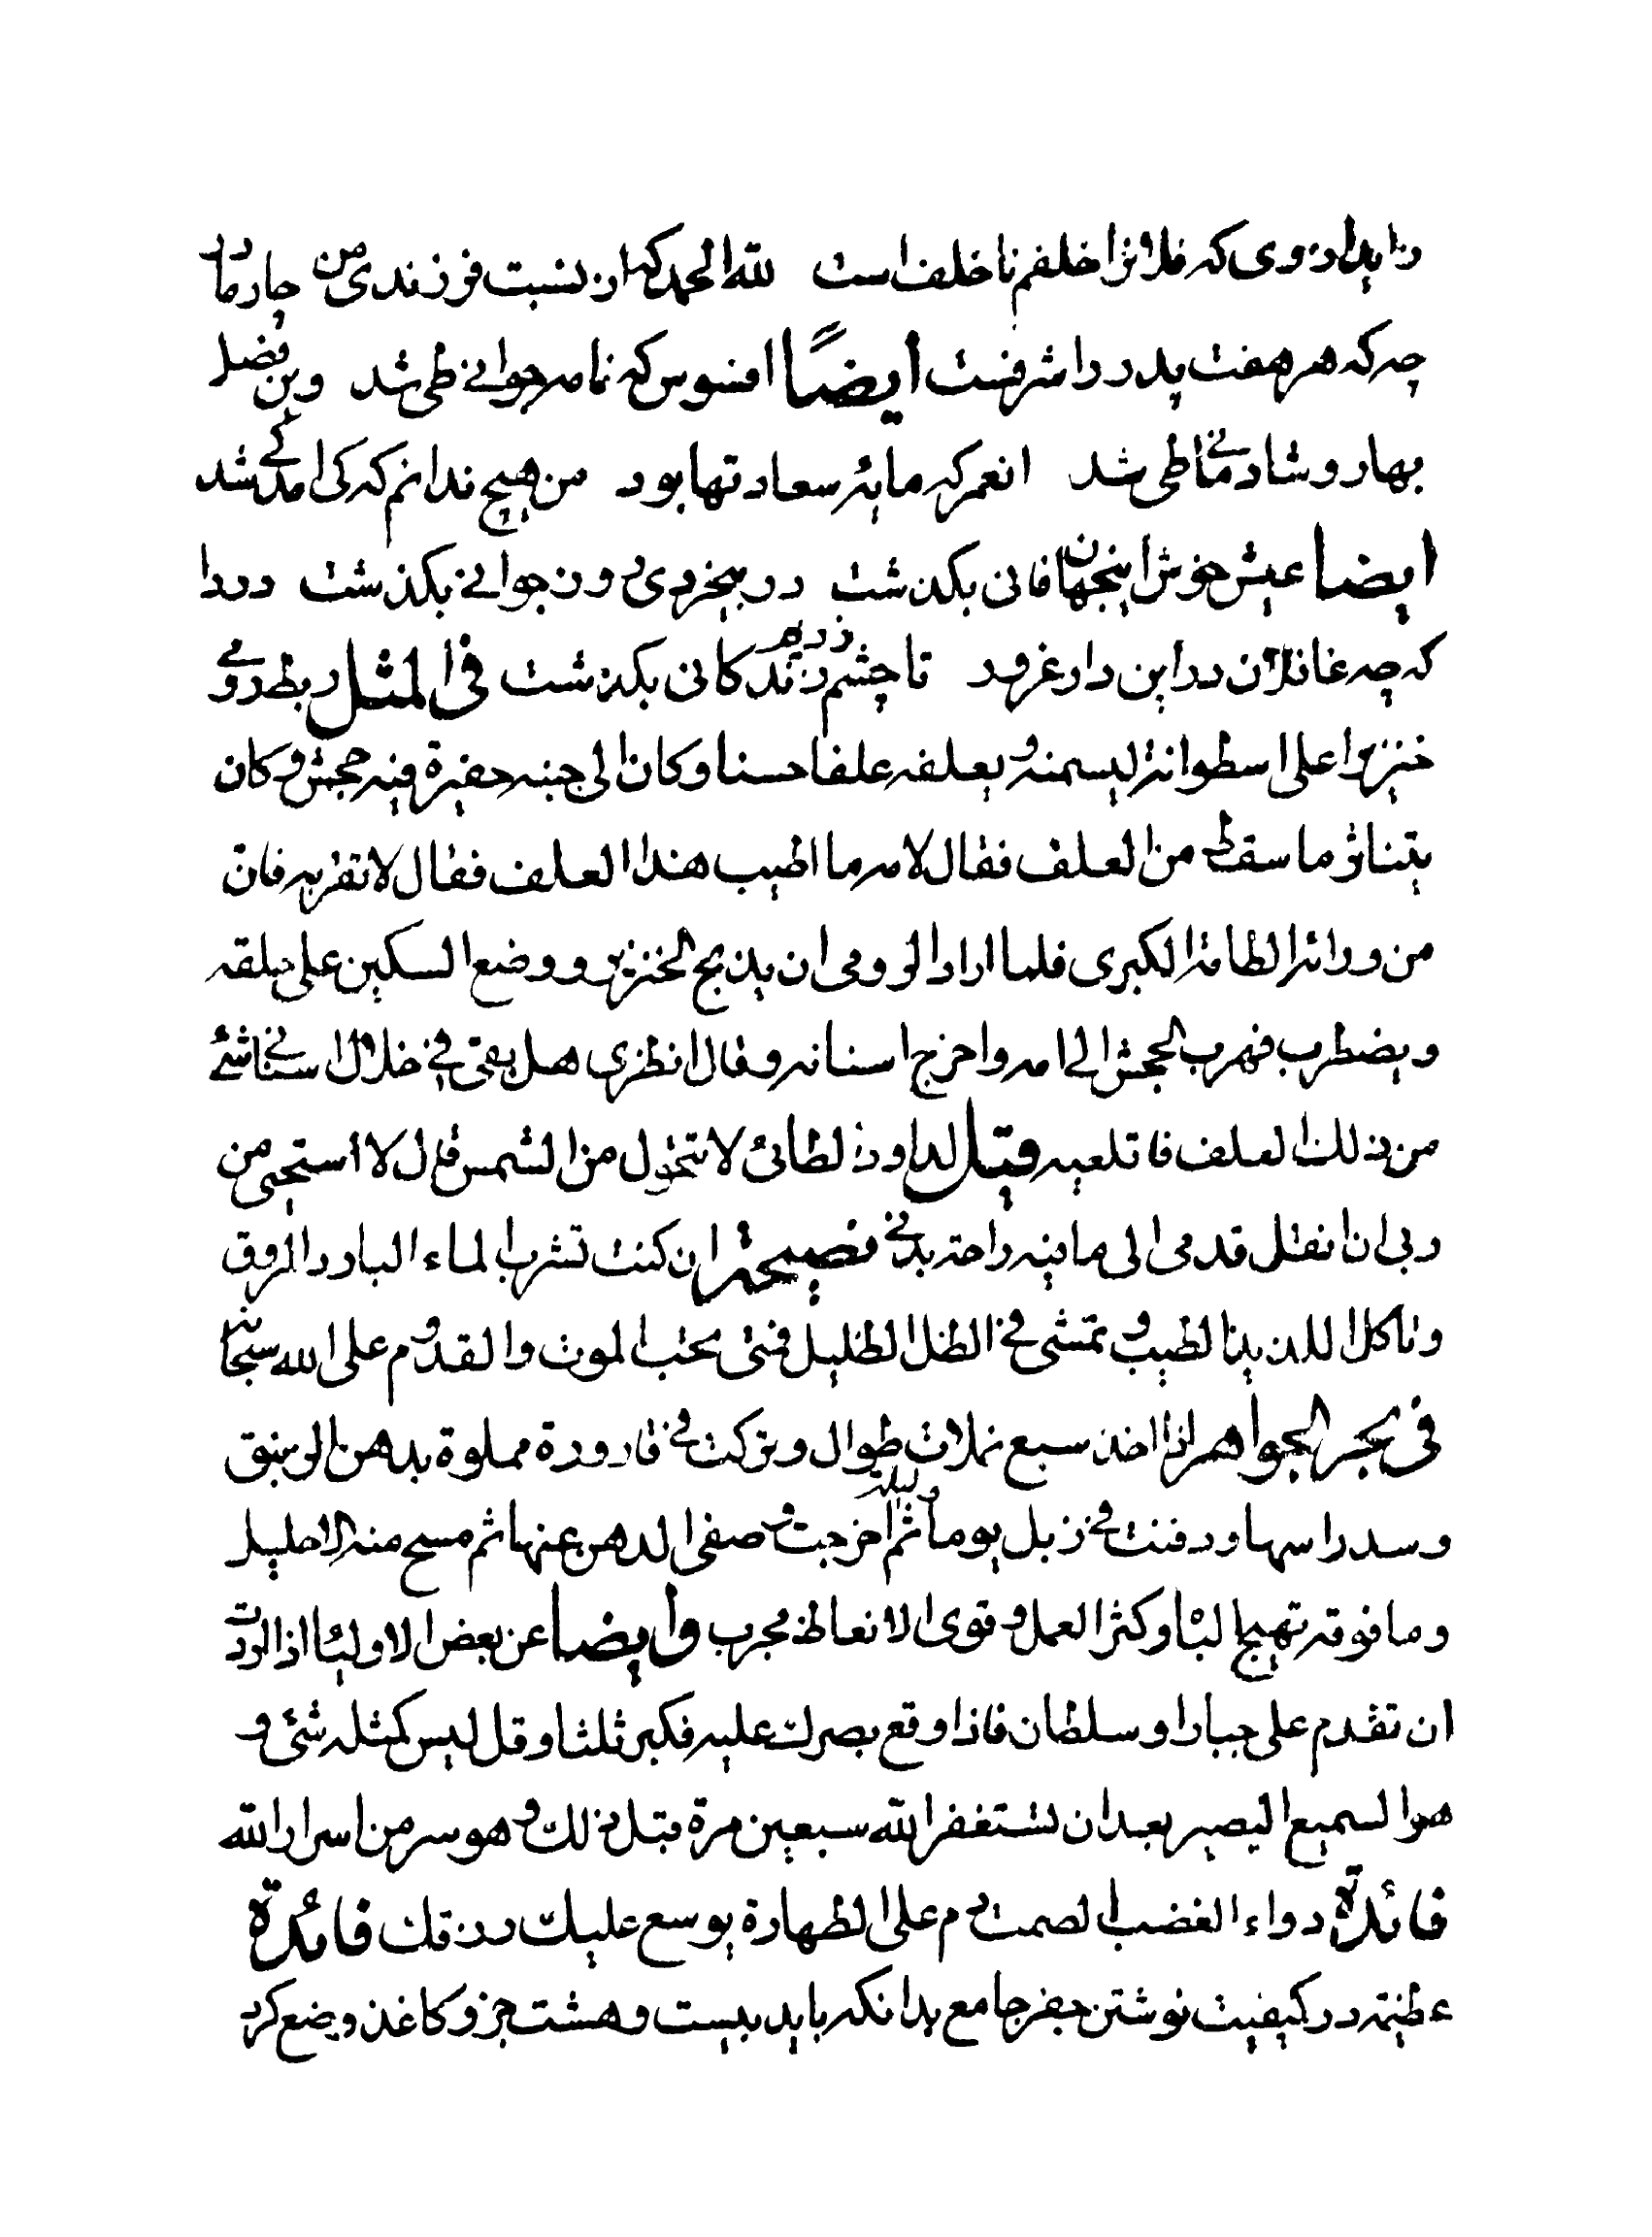 را بدار روی که فلانرا خلفم ناخلف است لله الحمد که از نسبت فرزندی من چار مادر
چه که هر هفت پدر را شرفست ایضاً افسوس که نامه جوانی طی شد وین فصل
بهار و شادمانی طی شد انعمر که مایه سعادتها بود من هیچ ندانم که کی آمد کی شد
ایضا عیش خوش اینجهان فانی بگذشت در بیخردی دور جوانی بگذشت دردا
که چه غافلان در این دار غرور تا چشم زدیم زندگانی بگذشت فی المثل ربط رومی
خنزیرا علی اسطوانة لیسمنه و یعلفه علفا حسنا و کان الی جنبه حفیرة فیه جحش و کان
یتناثر ما سقط من العلف فقال لامه ما اطیب هذا العلف فقال لا تقربه فان
من ورائه الطامة الکبری فلما اراد الرومی ان یذبح الخنزیر و وضع السکین علی حلقه
و یضطرب فهرب الجحش الی امه و اخرج اسنانه و قال انظری هل بقی فی خلال اسنانی شئ
من ذلک العلف فاقلعیه قیل لداود الطائی لا تتحول من الشمس قال لا استحیی من
ربی ان انقل قدمی الی ما فیه راحة بدنی نصیحة ان کنت تشرب الماء البارد المروق
و تاکل اللذیذ الطیب و تمشی فی الظل الظلیل فمتی تحب الموت و القدوم علی الله سبحانه
فی بحر الجواهر اذا اخذ سبع نملات طوال و ترکت فی قارورة مملوة بدهن الزینبق
و سد راسها و دفنت فی زبل یوما و لیلة ثم اخرجت و صفی الدهن عنها ثم مسح منه الاحلیل
و ما فوقه تهیج الباه و کثر العمل و قوی الانعاظ مجرب و ایضا عن بعض الاولیاء اذا اردت
ان تقدم علی جبار او سلطان فاذا وقع بصرک علیه فکبر ثلثا و قل لیس کمثله شئ و
هو السمیع البصیر بعد ان تستغفر الله سبعین مرة قبل ذلک و هو سر من اسرار الله
فائدة دواء الغضب الصمت دم علی الطهارة یوسع علیک رزقک فائدة
عظیمة در کیفیت نوشتن جفر جامع بدانکه باید بیست و هشت جزو کاغذ وضع کرد